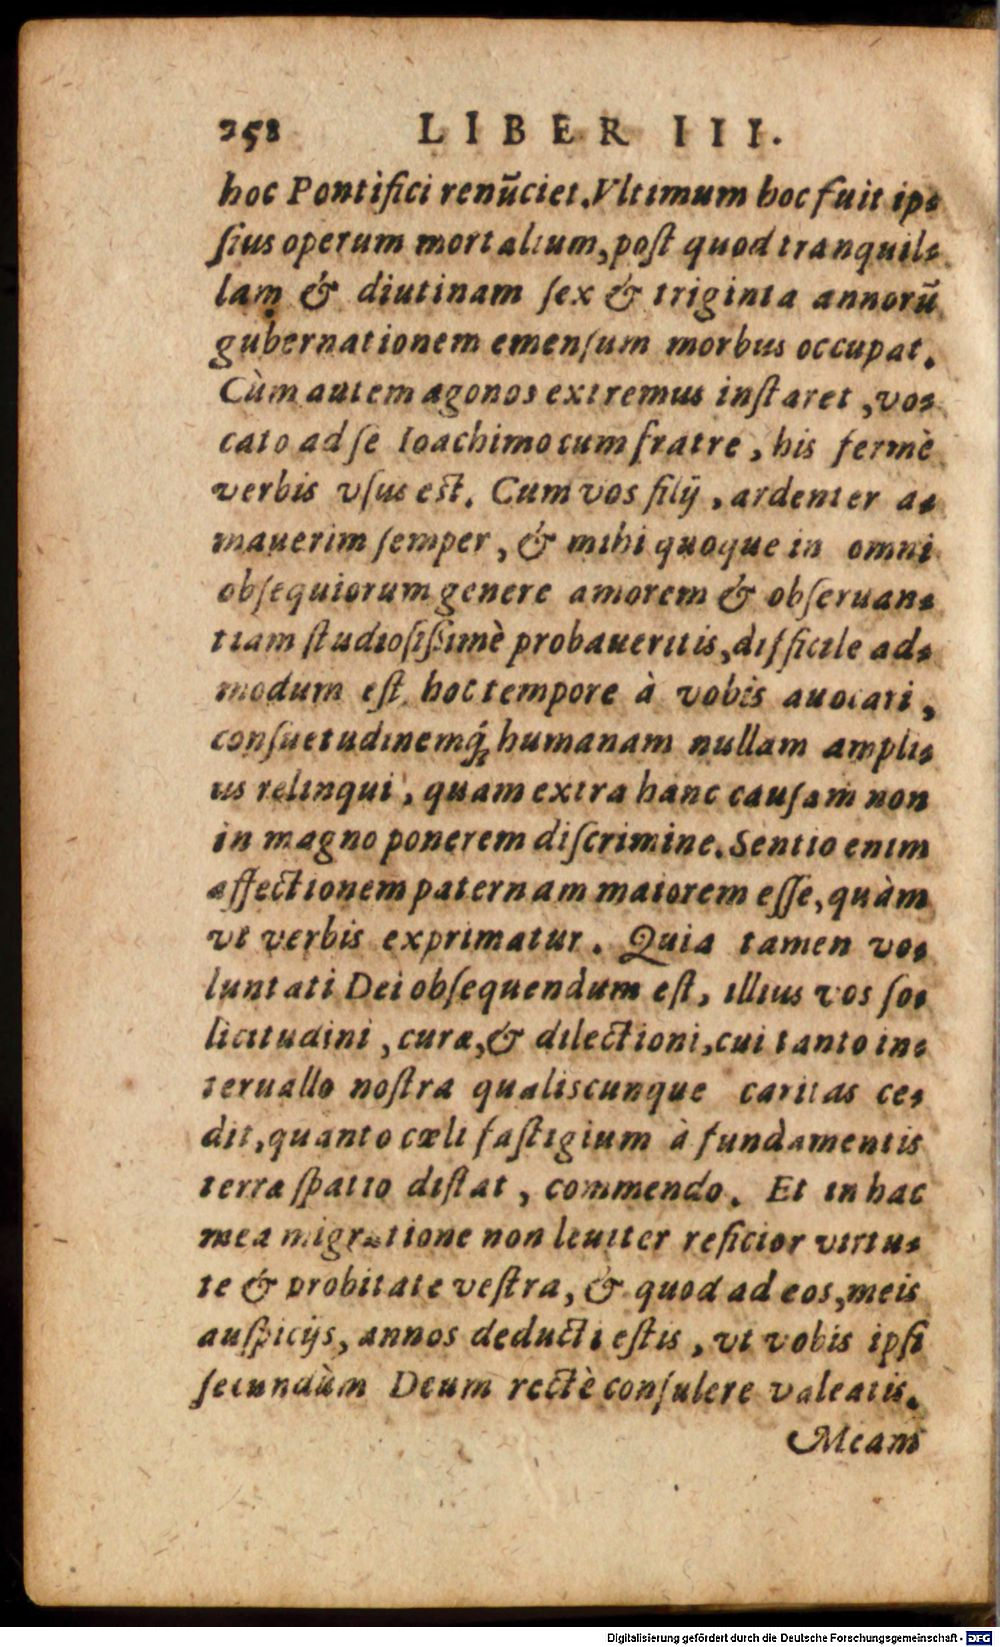 258 LIBER III.
hoc Pontifici renũciet. Vltimum hoc fuit ip-
ſius operum mortalium, poſt quod tranquil-
lam & diutinam ſex & triginta annorũ
gubernationem emenſum morbus occupat.
Cùm autem agonos extremus inſtaret, vo-
cato ad ſe Ioachimo cum fratre, his fermè
verbis vſus eſt. Cum vos filij, ardenter a-
mauerim ſemper, & mihi quoque in omni
obſequiorum genere amorem & obſeruan-
tiam ſtudioſißimè probaueritis, difficile ad-
modum eſt hoc tempore à vobis auocari,
conſuetudinemq́; humanam nullam ampli-
us relinqui, quam extra hanc cauſam non
in magno ponerem diſcrimine. Sentio enim
affectionem paternam maiorem eſſe, quàm
vt verbis exprimatur. Quia tamen vo-
luntati Dei obſequendum eſt, illius vos ſo-
licitudini, curæ, & dilectioni, cui tanto in-
teruallo noſtra qualiscunque caritas ce-
dit, quanto cœli faſtigium à fundamentis
terra ſpatio diſtat, commendo. Et in hac
mea migratione non leuiter reficior virtu-
te & probitate veſtra, & quod ad eos, meis
auſpicijs, annos deducti eſtis, vt vobis ipſi
ſecundùm Deum rectè conſulere valeatis.
Meam
Digitalisierung gefördert durch die Deutsche Forschungsgemeinschaft - DFG